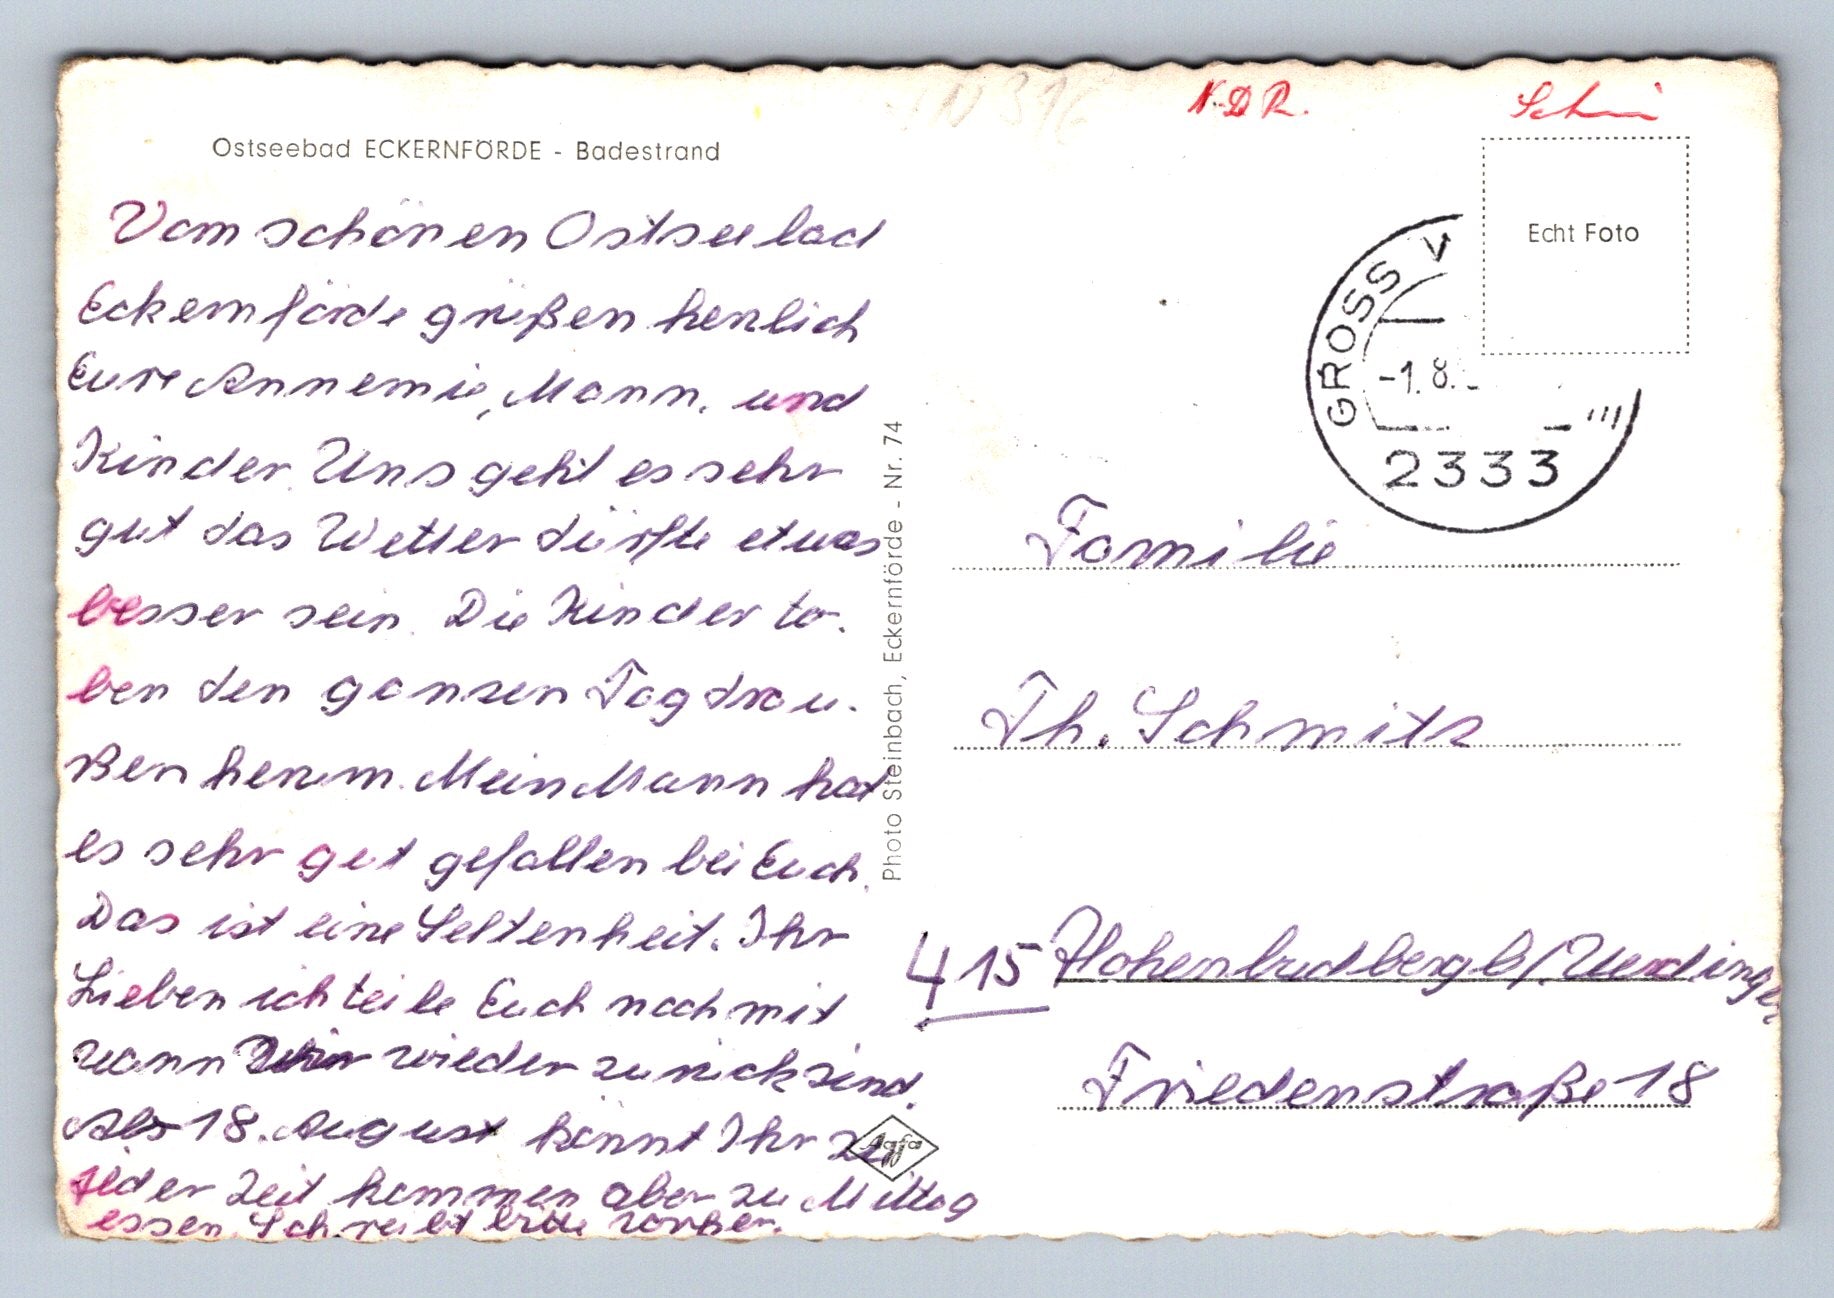 N.D.R.
Ostseebad ECKERNFÖRDE - Badestrand
Vom schönen Ostseebad
Eckernförde grüßen herzlich
Eure Annemie, Mann, und
Kinder. Uns geht es sehr
gut das Wetter dürfte etwas
besser sein. Die Kinder to-
ben den ganzen Tag drau-
ßen herum. Mein Mann hat
es sehr gut gefallen bei Euch.
Das ist eine Seltenheit. Ihr
Lieben ich teile Euch noch mit
wann wir wieder zurück sind.
Ab 18. August könnt Ihr zu
jeder Zeit kommen aber zu Mittag
essen. Schreibt bitte vorher.
Photo Steinbach, Eckernförde - Nr. 74
Agfa
Echt Foto
GROSS V
-1.8.
2333
Familie
Th. Schmitz
415 Hohenbudberg b/Uerdingen
Friedenstraße 18